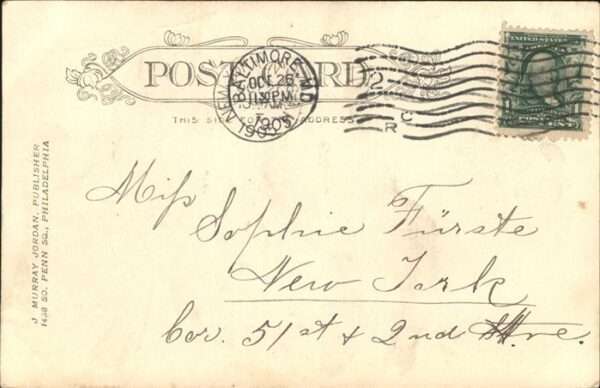 UNITED STATES
POST CARD
BALTIMORE, MD
OCT 26
1905
THIS SIDE FOR ADDRESS
1
J. MURRAY JORDAN, PUBLISHER
1438 SO. PENN SQ., PHILADELPHIA
Miss
Sophie Fürste
New York
Cor. 51st & 2nd Ave.